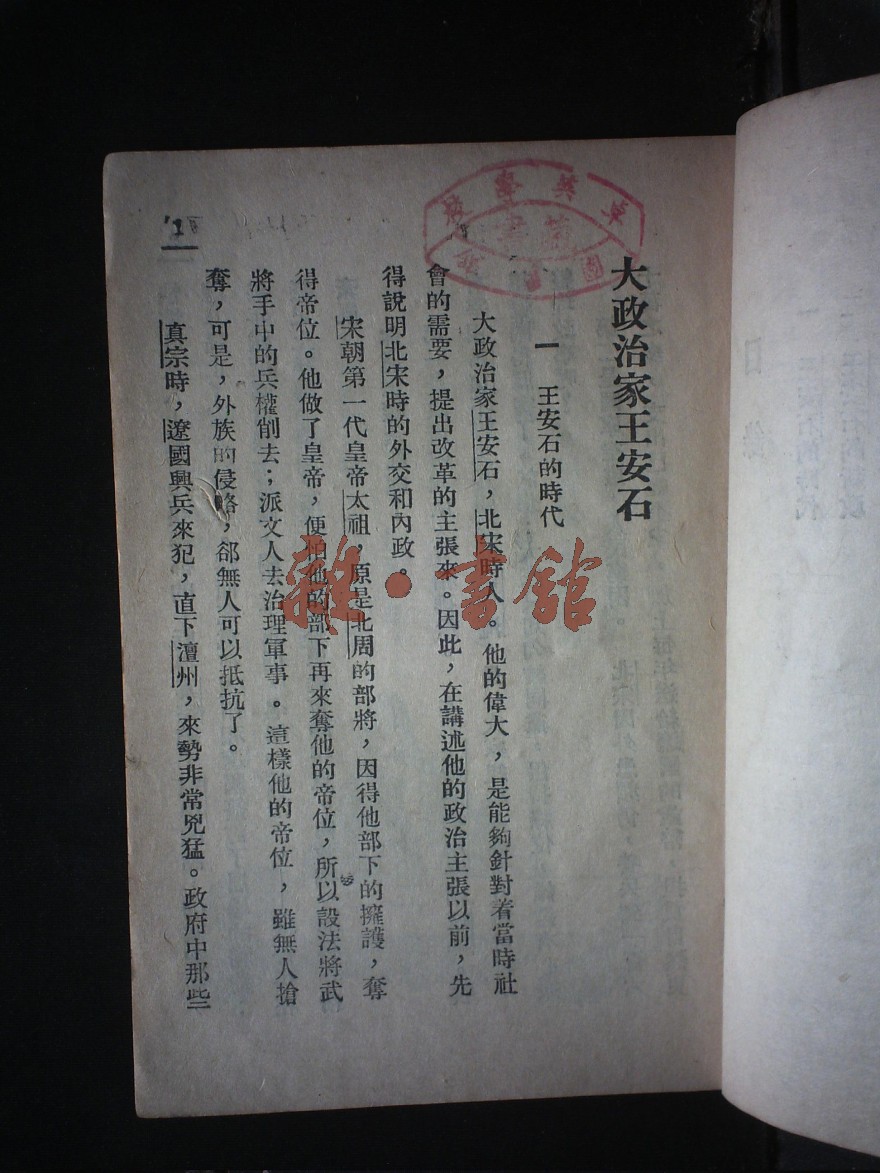 大政治家王安石
一　王安石的時代
大政治家王安石，北宋時人。他的偉大，是能夠針對着當時社
會的需要，提出改革的主張來。因此，在講述他的政治主張以前，先
得說明北宋時的外交和內政。
宋朝第一代皇帝太祖，原是北周的部將，因得他部下的擁護，奪
得帝位。他做了皇帝，便怕他的部下再來奪他的帝位，所以設法將武
將手中的兵權削去；派文人去治理軍事。這樣他的帝位，雖無人搶
奪，可是，外族的侵略，卻無人可以抵抗了。
真宗時，遼國興兵來犯，直下澶州，來勢非常兇猛。政府中那些
1
雜·書館